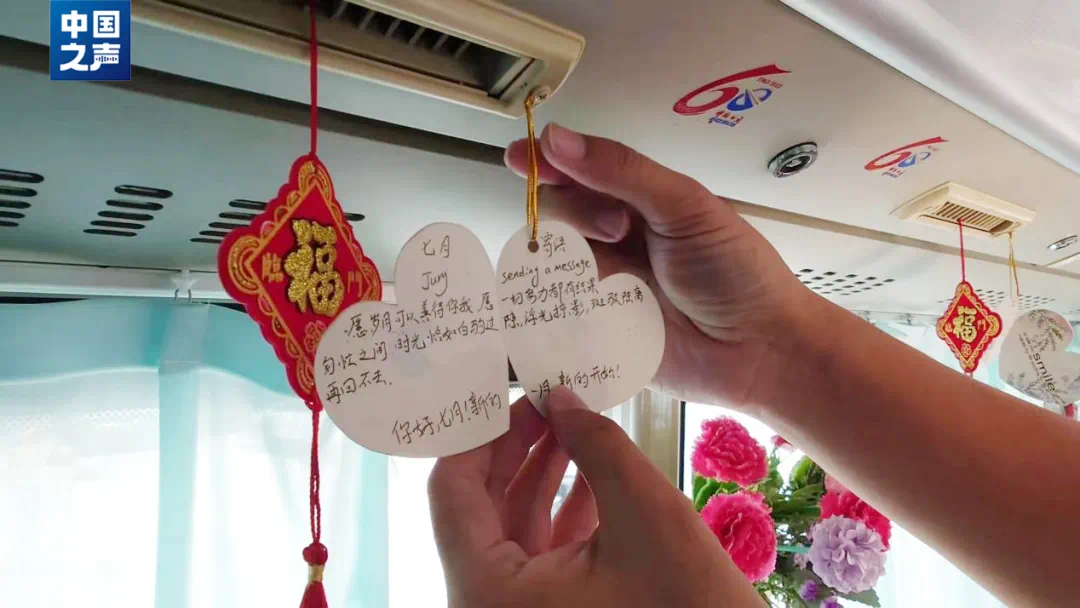 中国
之声
福
七月
July
愿岁月可以善待你我,愿
匆忙之间 时光恰如白驹过
再回不去.
你好,七月!新的
寄语
sending a message
一切努力都有结果
隙,浮光掠影,斑驳陆离
一月 新的开始!
福
smile